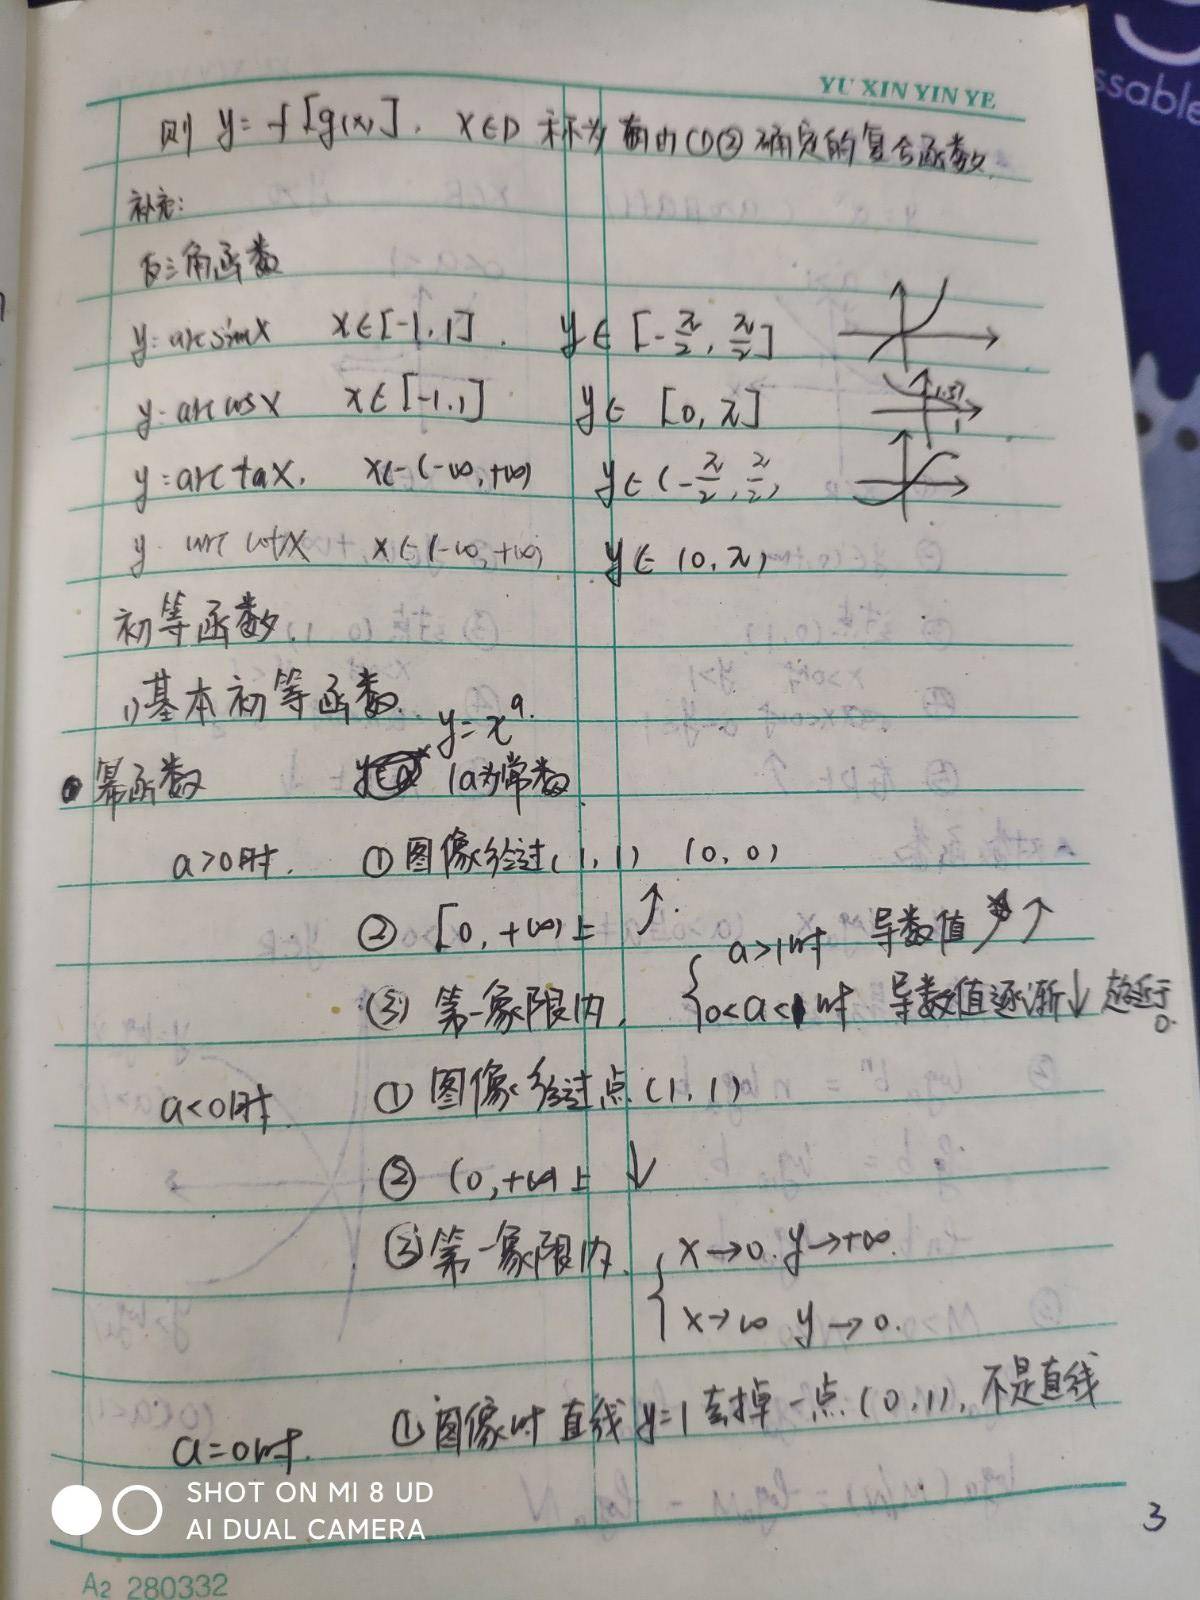 YU XIN YIN YE
ssable
则 y=f[g(x)]. x∈D 称为 由(1)② 确定的复合函数.
补充:
反三角函数
y=arcsinx x∈[-1,1]. y∈[-π/2,π/2]
y=arccosx x∈[-1,1] y∈[0,π]
y=arctax. x∈(-∞,+∞) y∈(-π/2,π/2,
y arccotx x∈(-∞,+∞) y∈(0,π)
初等函数.
1)基本初等函数. y=x^a.
幂函数 (a为常数
a>0时. ①图像经过(1,1) (0,0)
② [0,+∞)上 ↑.
③ 第一象限内, { a>1时 导数值 ↑
0<a<1时 导数值逐渐↓ 趋近于0.
a<0时. ①图像经过点(1,1)
② (0,+∞)上 ↓
③ 第一象限内. { x→0. y→+∞.
x→∞ y→0.
a=0时. ①图像时 直线 y=1 去掉一点(0,1), 不是直线
3
SHOT ON MI 8 UD
AI DUAL CAMERA
A2 280332